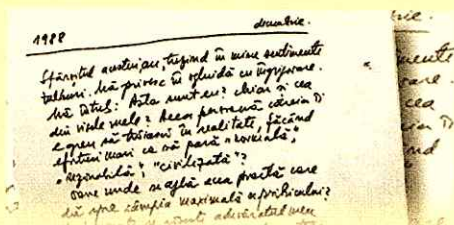 1988 decembrie.
Sfârșitul trezind în mine sentimente
tulburi. Mă privesc în oglindă cu îngrijorare.
Mă întreb: Asta sunt eu? Chiar și cea
din visele mele? Acea persoană căreia îi
e greu să trăiască în realitate, făcând
eforturi mari ca să pară "normală",
"rezonabilă", "civilizată"?
Oare unde se află acea poartă care
dă spre câmpia maximală a psihicului?
adevăratul meu
rie.
mente
rare.
cea
îi
nd